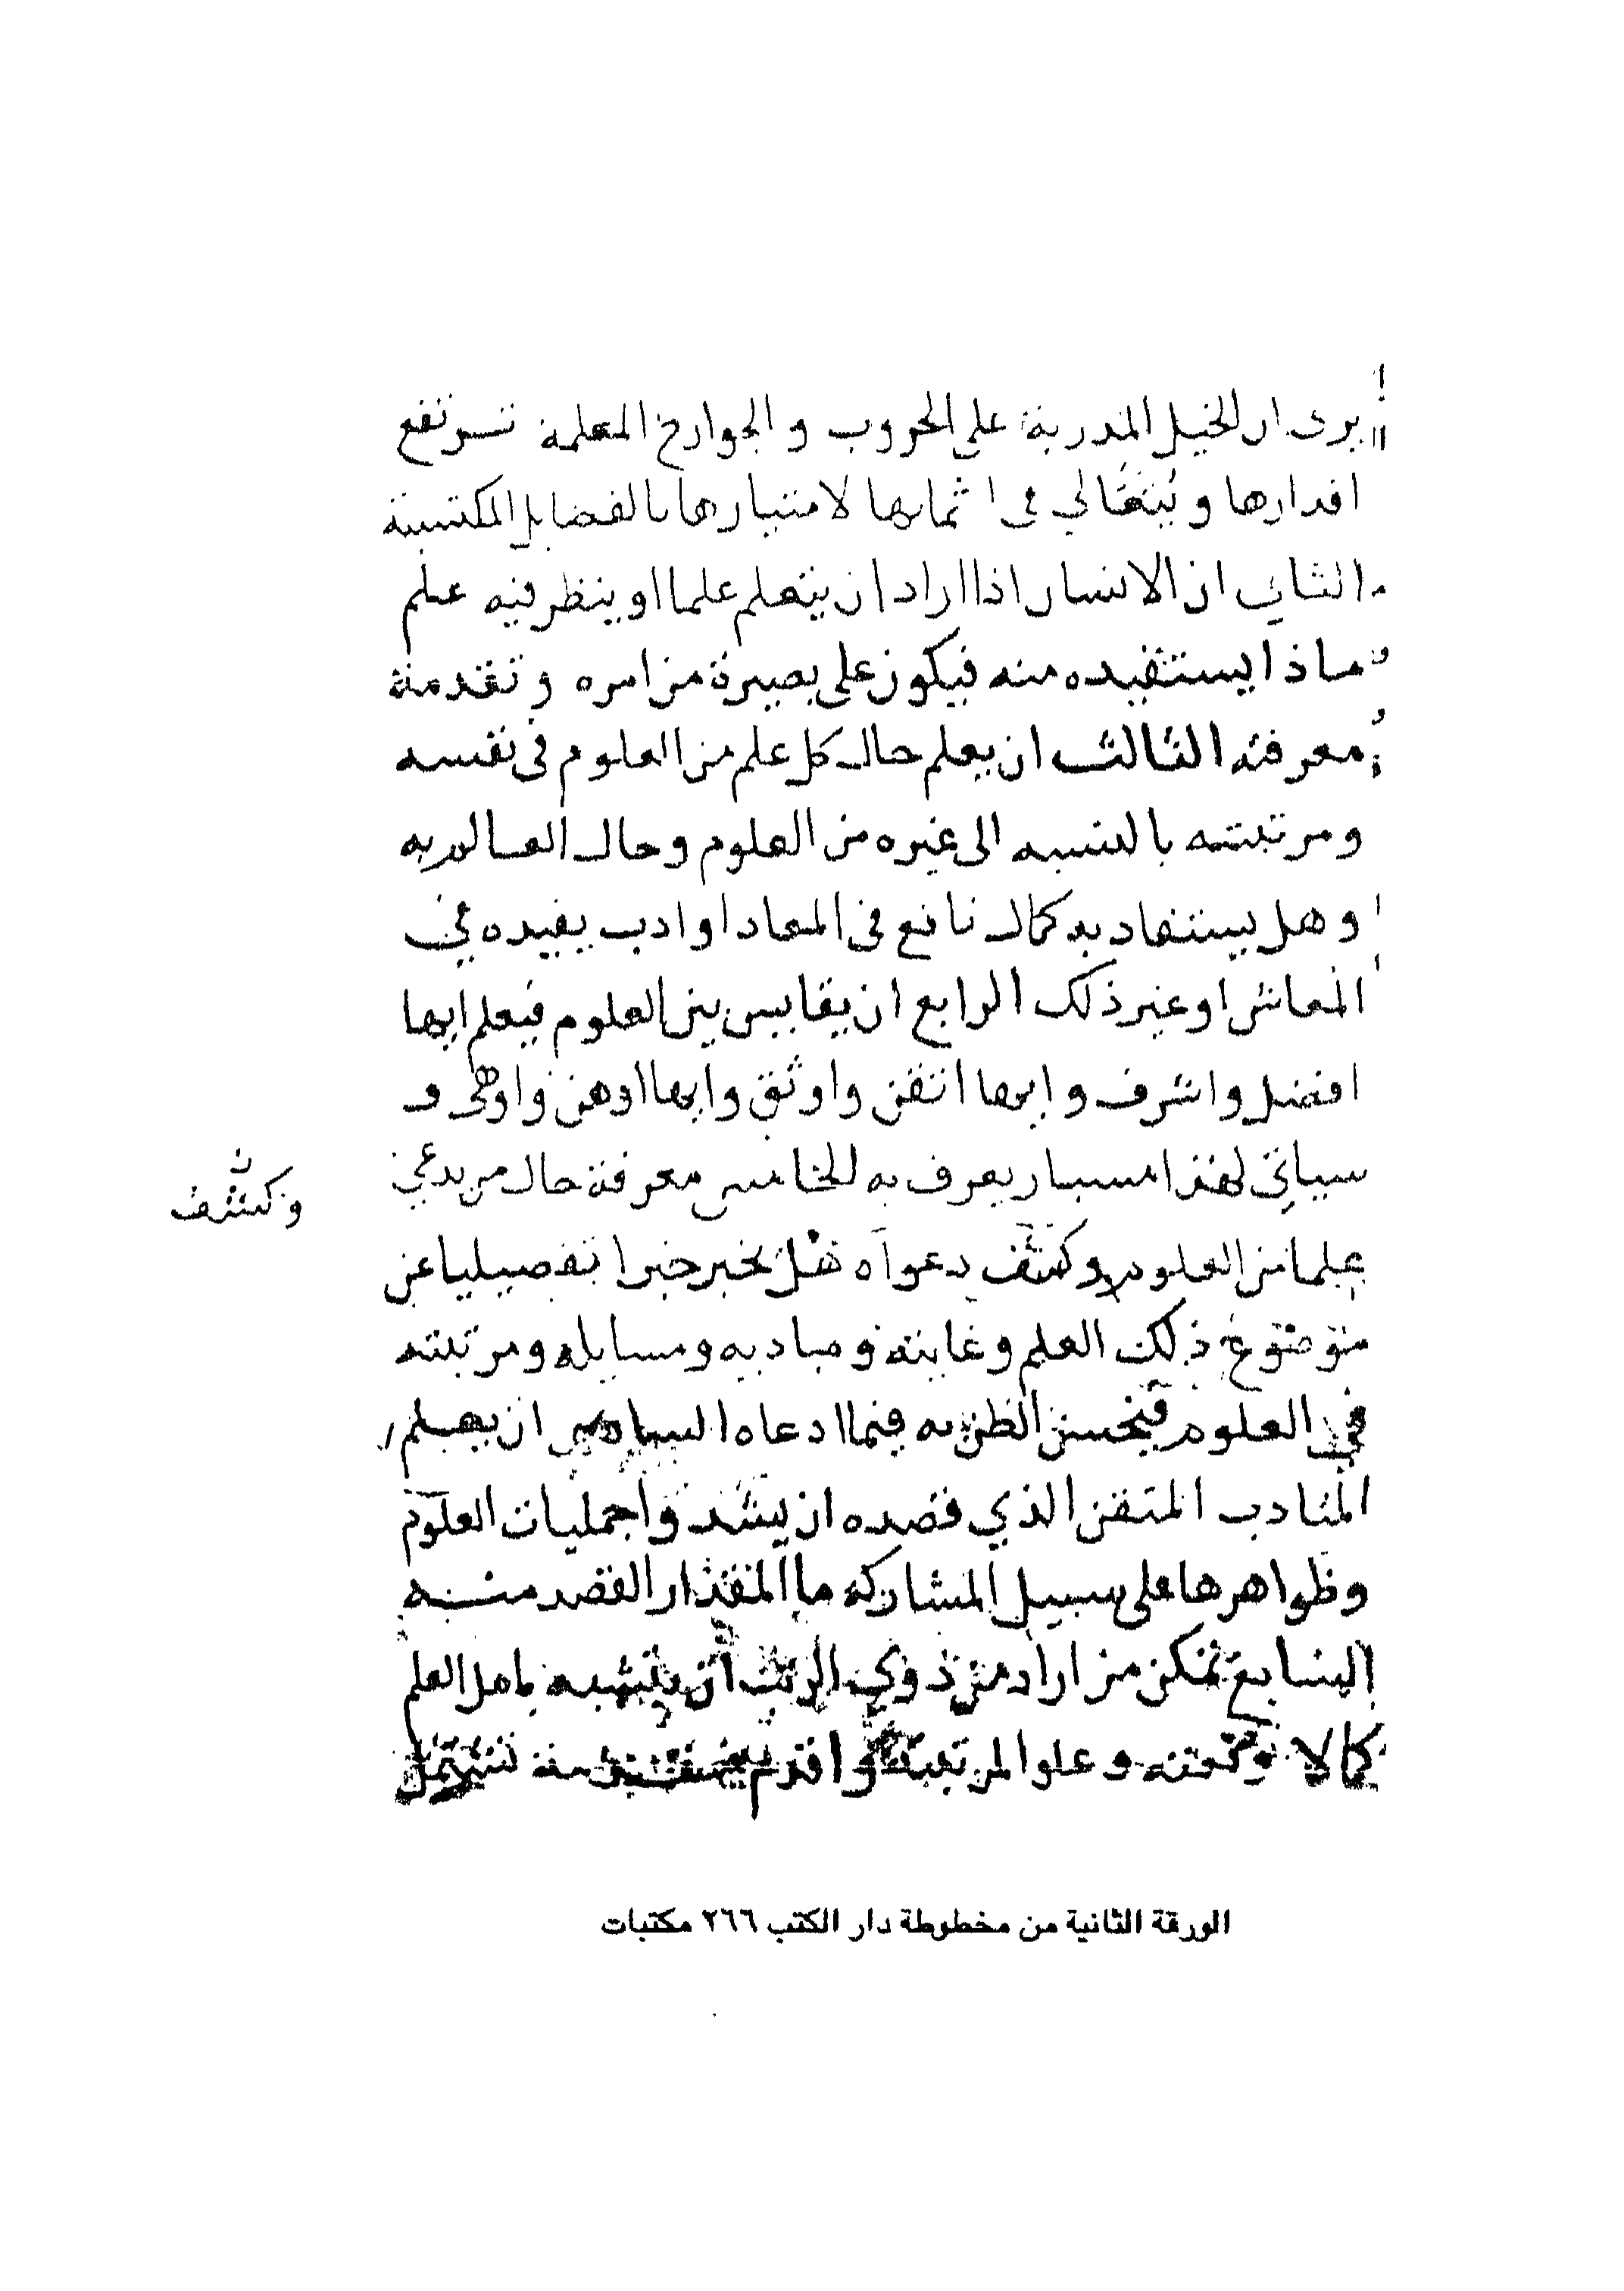 يرى ان الخيل المدربة على الحروب والجوارح المعلمة ترتفع
اقدارها ويتغالي في اثمانها لامتيازها بالفضايل المكتسبة
الثاني ان الانسان اذا اراد ان يتعلم علما او ينظر فيه علم
ماذا يستفيده منه فيكون على بصيرة من امره وتقدمة
معرفته الثالث ان يعلم حال كل علم من العلوم في نفسه
ومرتبته بالنسبه الى غيره من العلوم وحال العالم به
وهل يستفاد به كمال نافع في المعاد او ادب يفيده في
المعاش او غير ذلك الرابع ان يقايس بين العلوم فيعلم ايها
افضل واشرف وايها اتقن واوثق وايها اوهن واوهى و
سياتي لهذا مسبار يعرف به الخامس معرفة حال من يدعي
علما من العلوم وكشف دعواه هل يخبر خبرا تفصيليا عن
موضوع ذلك العلم وغايته ومباديه ومسايله ومرتبته
في العلوم فيحسن الظن به فيما ادعاه السادس ان يعلم
المتادب المتقن الذي قصده ان يشدو اجمليات العلوم
وظواهرها على سبيل المشاركة ما المقدار القصد منه
السابع تمكن من اراد من ذوي الرتب ان يتشبه باهل العلم
كمالا وعلو المرتبة واقدم تشتمل
وكشف
الورقة الثانية من مخطوطة دار الكتب ٢٦٦ مكتبات